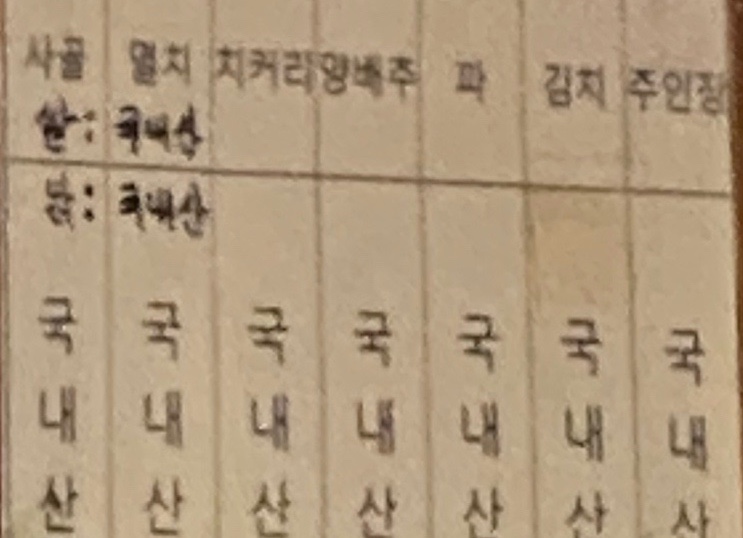 사골 멸치 치커리 양배추 파 김치 주인장
쌀: 국내산
닭: 국내산
국 국 국 국 국 국 국
내 내 내 내 내 내 내
산 산 산 산 산 산 산